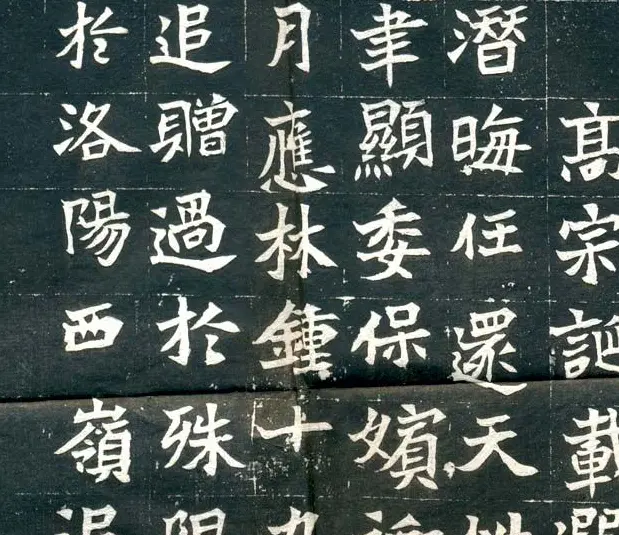 高宗誕載
潛晦任還天
聿顯委保嬪
月應林鍾十九
追贈過於殊限
於洛陽西嶺追